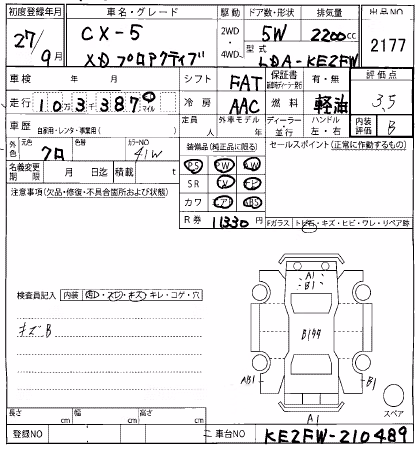 初度登録年月 車名・グレード 駆動 ドア数・形状 排気量 出品NO
27/9月 CX-5 XD プロアクティブ 2WD・4WD 5W 2200cc 2177
型式 LDA-KE2FW
車検 年 月 シフト FAT 保証書 有・無 評価点 3.5
走行 103387 km マイル 冷房 AAC 燃料 軽油
車歴 自家用・レンタ・事業用( ) 定員 人 外車モデル 年 ディーラー・並行 ハンドル 左・右 内装評価 B
外色 元色 クロ 色替 カラーNO 41W 装備品(純正品に限る) セールスポイント(正常に作動するもの)
名義変更期限 月 日迄 積載 t PS PW AW
注意事項(欠品・修復・不具合箇所および状態) SR
カワ エアB ABS
R券 11330円 Fガラス トビ石・キズ・ヒビ・ワレ・リペア跡
A1
B1
検査員記入 内装 キレ・コゲ・穴
キズB
B144
AB1
B1
スペア
A1
長さ cm 幅 cm 高さ cm
登録NO 車台NO KE2FW-210489